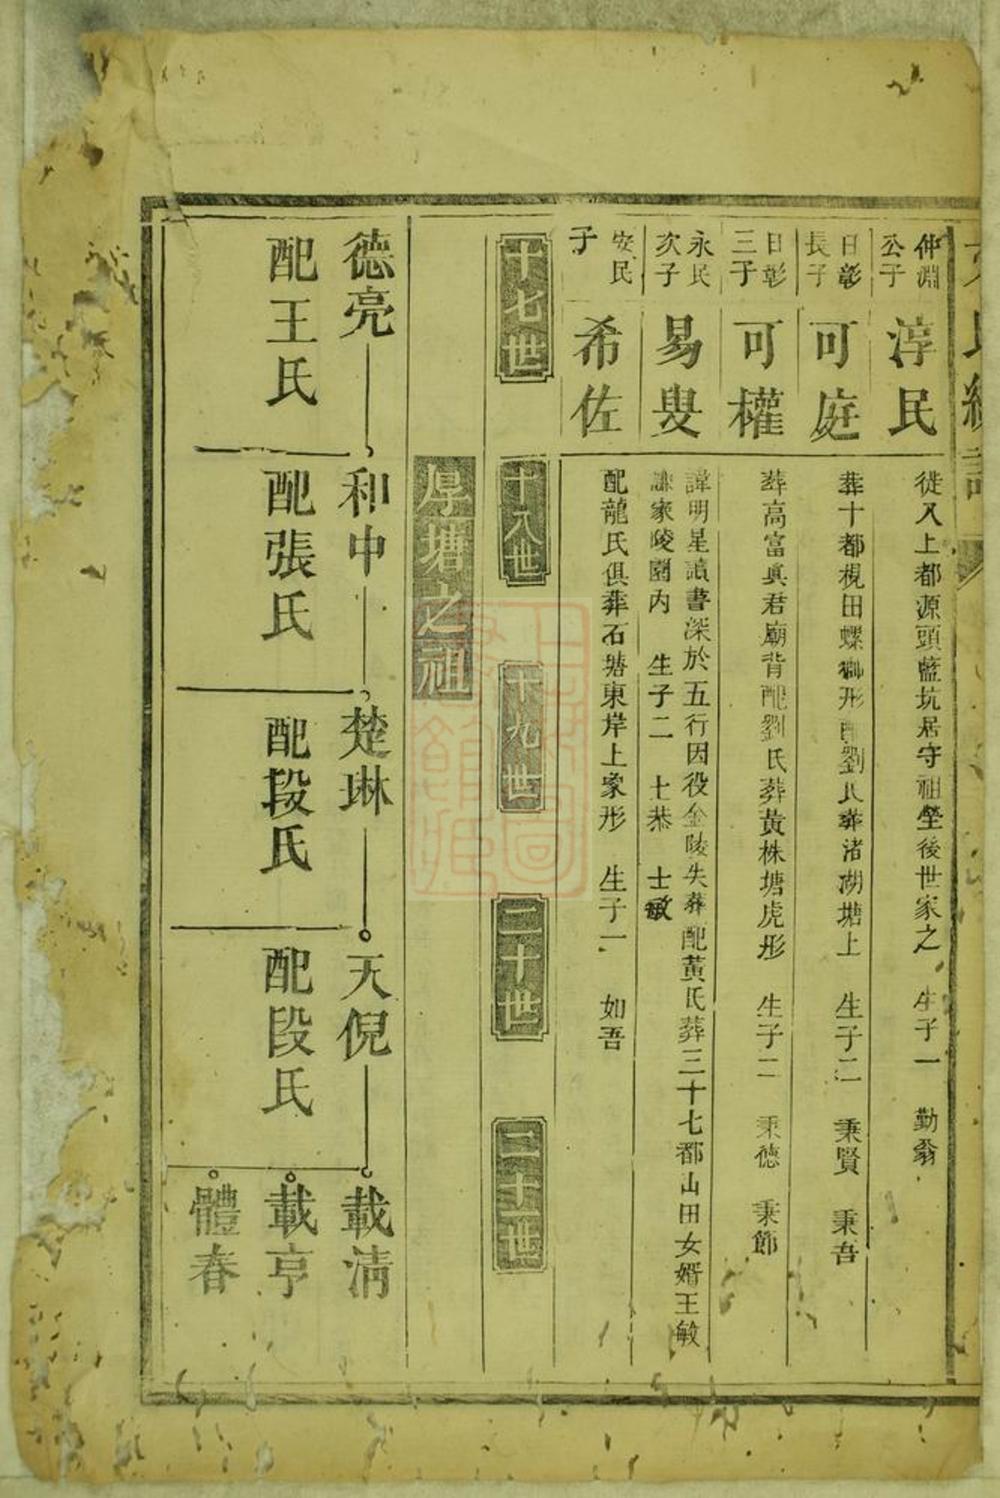 仲淵公子
淳民
徙入上都源頭藍坑居守祖塋後世家之 生子一 勤翁
日彰長子
可庭
葬十都視田螺螄形配劉氏葬渚湖塘上 生子二 秉賢 秉吾
日彰三子
可權
葬高富真君廟背配劉氏葬黃株塘虎形 生子二 秉德 秉節
永民次子
易叟
諱明星讀書深於五行因役金陵失葬配黃氏葬三十七都山田女婿王敏
謙家陵園內 生子二 士恭 士敏
安民子
希佐
配龍氏俱葬石塘東岸上象形 生子一 如吾
十七世
十八世
十九世
二十世
二十一世
厚塘之祖
德亮
配王氏
和中
配張氏
楚琳
配段氏
天倪
配段氏
載清
載亨
體春